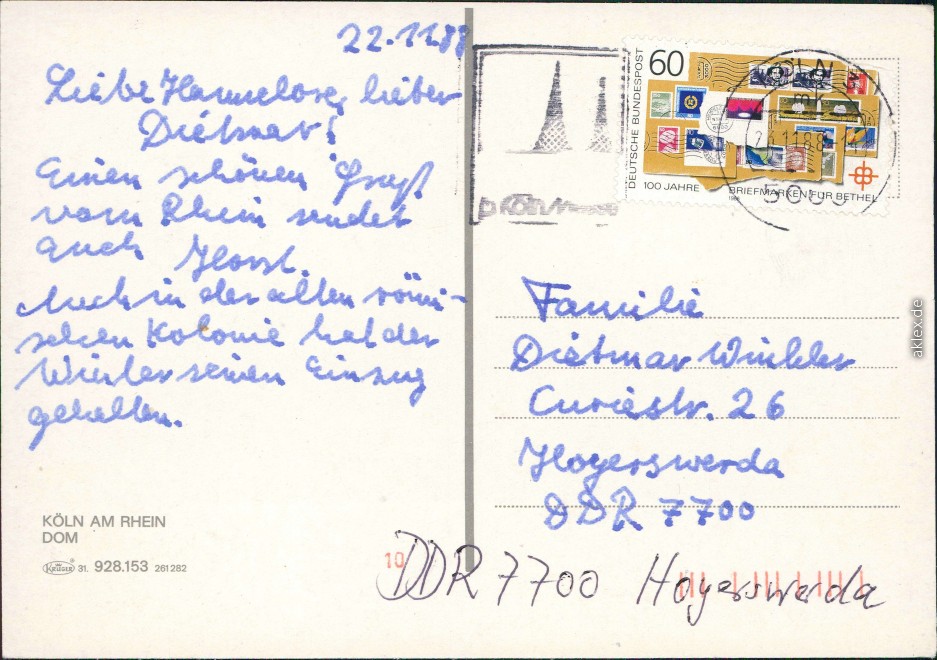 22.11.88
Liebe Hannelore, lieber
Dietmar!
Einen schönen Gruß
vom Rhein sendet
auch Horst.
Auch in der alten römi-
schen Kolonie hat der
Winter seinen Einzug
gehalten.
KÖLN AM RHEIN
DOM
KRÜGER 31. 928.153 261282
DEUTSCHE BUNDESPOST
60
100 JAHRE BRIEFMARKEN FÜR BETHEL
KÖLN
11.88
Familie
Dietmar Winkler
Curiestr. 26
Hoyerswerda
DDR 7700
10
DDR 7700 Hoyerswerda
aklex.de